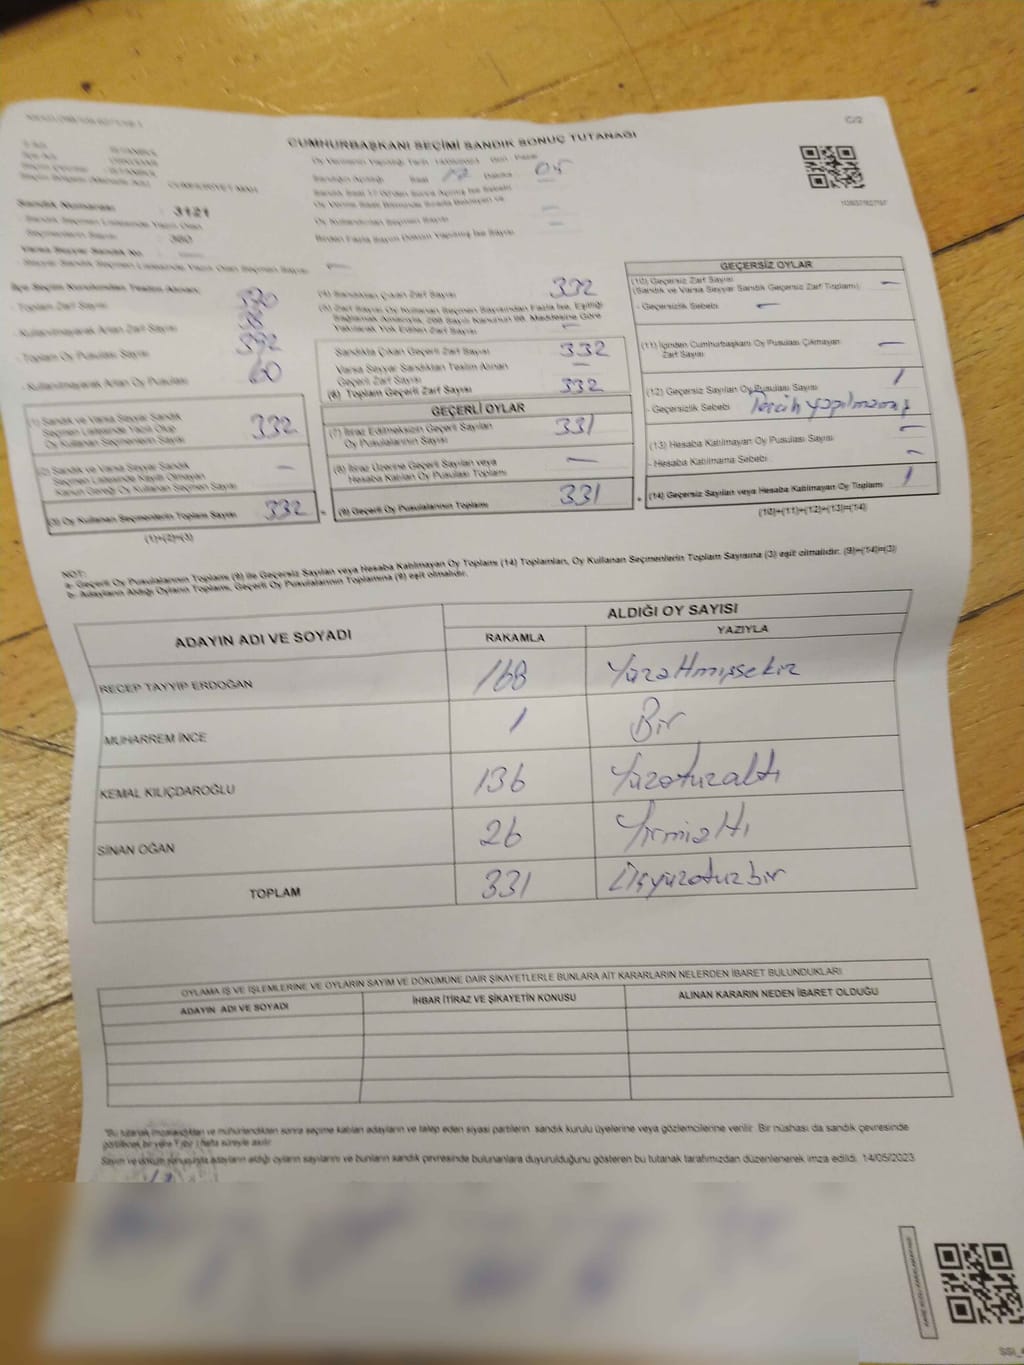 C/2
CUMHURBAŞKANI SEÇİMİ SANDIK SONUÇ TUTANAĞI
Oy Verilerin Yapıldığı Tarih
Sandığın Açıldığı Saat 17 Dakika 05
CUMHURİYET MAH.
Sandık Numarası : 3121
- Sandık Seçmen Listesinde Yazılı Olan
Seçmenlerin Sayısı : 380
Varsa Seyyar Sandık No
- Seyyar Sandık Seçmen Listesinde Yazılı Olan Seçmen Sayısı —
Oy Kullandırılan Seçmen Sayısı —
Birden Fazla Sayım Döküm Yapılmış İse Sayısı —
İlçe Seçim Kurulundan Teslim Alınan;
- Toplam Zarf Sayısı
- Kullanılmayarak Artan Zarf Sayısı
- Toplam Oy Pusulası Sayısı 392
- Kullanılmayarak Artan Oy Pusulası 60
(1) Sandık ve Varsa Seyyar Sandık
Seçmen Listesinde Yazılı Olup
Oy Kullanan Seçmenlerin Sayısı 332
(2) Sandık ve Varsa Seyyar Sandık
Seçmen Listesinde Kayıtlı Olmayan
Kanun Gereği Oy Kullanan Seçmen Sayısı —
(3) Oy Kullanan Seçmenlerin Toplam Sayısı 332
(1)+(2)=(3)
(4) Sandıktan Çıkan Zarf Sayısı 332
(5) Zarf Sayısı Oy Kullanan Seçmen Sayısından Fazla İse, Eşitliği
Sağlamak Amacıyla, 298 Sayılı Kanunun 98. Maddesine Göre
Yakılarak Yok Edilen Zarf Sayısı —
Sandıkta Çıkan Geçerli Zarf Sayısı 332
Varsa Seyyar Sandıktan Teslim Alınan
Geçerli Zarf Sayısı —
(6) Toplam Geçerli Zarf Sayısı 332
GEÇERLİ OYLAR
(7) İtiraz Edilmeksizin Geçerli Sayılan
Oy Pusulalarının Sayısı 331
(8) İtiraz Üzerine Geçerli Sayılan veya
Hesaba Katılan Oy Pusulası Toplamı —
(9) Geçerli Oy Pusulalarının Toplamı 331
GEÇERSİZ OYLAR
(10) Geçersiz Zarf Sayısı
(Sandık ve Varsa Seyyar Sandık Geçersiz Zarf Toplamı) —
- Geçersizlik Sebebi —
(11) İçinden Cumhurbaşkanı Oy Pusulası Çıkmayan
Zarf Sayısı —
(12) Geçersiz Sayılan Oy Pusulası Sayısı 1
- Geçersizlik Sebebi Tercih yapılmamış
(13) Hesaba Katılmayan Oy Pusulası Sayısı —
- Hesaba Katılmama Sebebi —
+ (14) Geçersiz Sayılan veya Hesaba Katılmayan Oy Toplamı 1
(10)+(11)+(12)+(13)=(14)
NOT:
a- Geçerli Oy Pusulalarının Toplamı (9) ile Geçersiz Sayılan veya Hesaba Katılmayan Oy Toplamı (14) Toplamları, Oy Kullanan Seçmenlerin Toplam Sayısına (3) eşit olmalıdır. (9)+(14)=(3)
b- Adayların Aldığı Oyların Toplamı, Geçerli Oy Pusulalarının Toplamına (9) eşit olmalıdır.
ADAYIN ADI VE SOYADI
ALDIĞI OY SAYISI
RAKAMLA YAZIYLA
RECEP TAYYİP ERDOĞAN 168 Yüzaltmışsekiz
MUHARREM İNCE 1 Bir
KEMAL KILIÇDAROĞLU 136 Yüzotuzaltı
SİNAN OĞAN 26 Yirmialtı
TOPLAM 331 Üçyüzotuzbir
OYLAMA İŞ VE İŞLEMLERİNE VE OYLARIN SAYIM VE DÖKÜMÜNE DAİR ŞİKAYETLERLE BUNLARA AİT KARARLARIN NELERDEN İBARET BULUNDUKLARI
ADAYIN ADI VE SOYADI İHBAR İTİRAZ VE ŞİKAYETİN KONUSU ALINAN KARARIN NEDEN İBARET OLDUĞU
*Bu tutanak imzalandıktan ve mühürlendikten sonra seçime katılan adayların ve talep eden siyasi partilerin sandık kurulu üyelerine veya gözlemcilerine verilir. Bir nüshası da sandık çevresinde
görülecek bir yere 1 (bir) hafta süreyle asılır.
Sayım ve döküm sonucuyla adayların aldığı oyların sayılarını ve bunların sandık çevresinde bulunanlara duyurulduğunu gösteren bu tutanak tarafımızdan düzenlenerek imza edildi. 14/05/2023